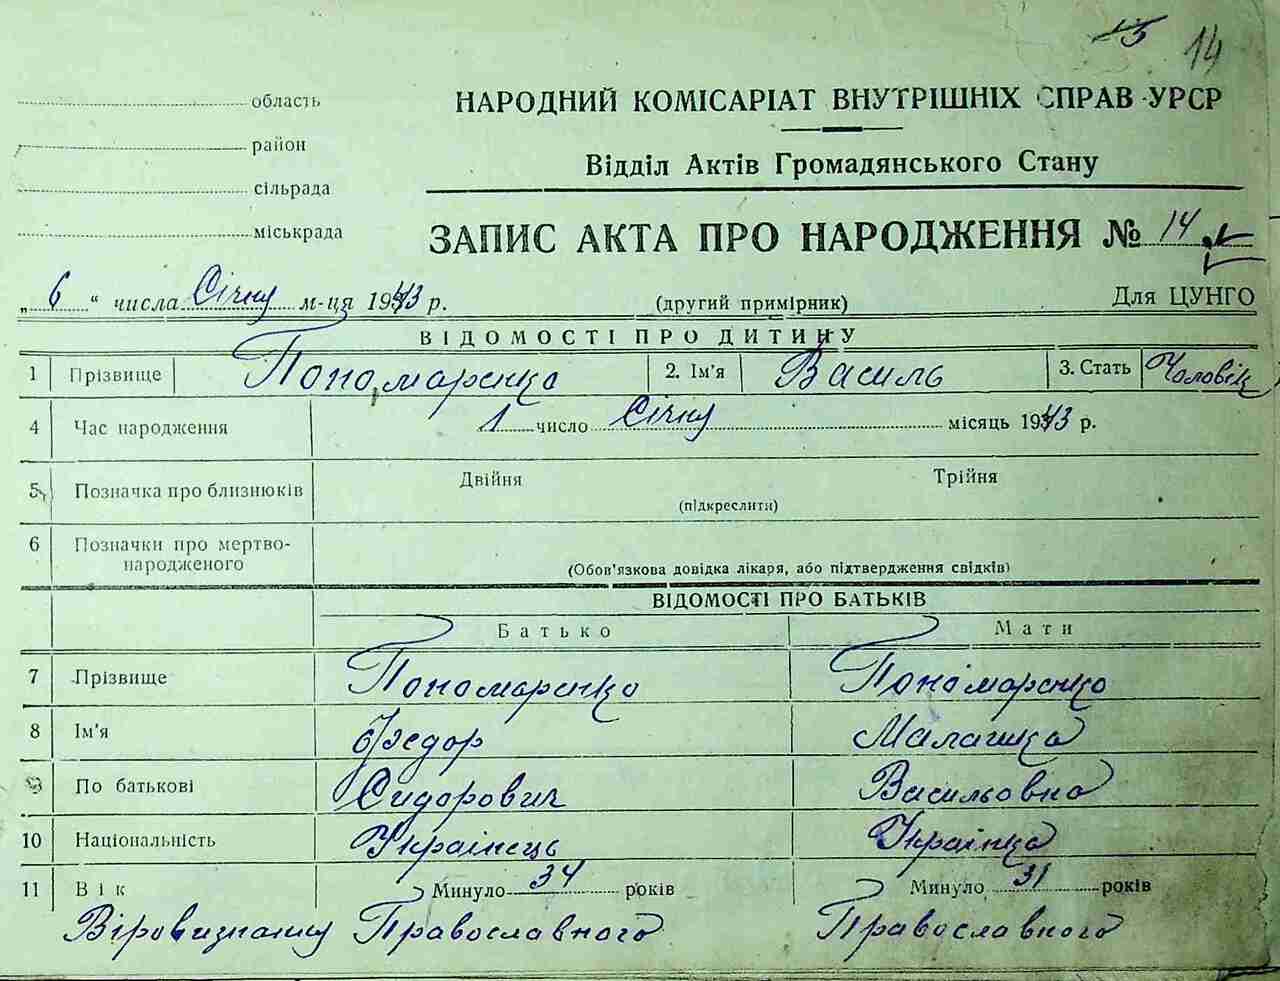 14
область
район
сільрада
міськрада
НАРОДНИЙ КОМІСАРІАТ ВНУТРІШНІХ СПРАВ УРСР
Відділ Актів Громадянського Стану
ЗАПИС АКТА ПРО НАРОДЖЕННЯ № 14
„ 6 “ числа Січну м-ця 1943 р. (другий примірник) Для ЦУНГО
ВІДОМОСТІ ПРО ДИТИНУ
1 Прізвище Пономаренко 2. Ім'я Василь 3. Стать Чоловік
4 Час народження 1 число Січну місяць 1943 р.
5 Позначка про близнюків Двійня Трійня
(підкреслити)
6 Позначки про мертво-
народженого (Обов'язкова довідка лікаря, або підтвердження свідків)
ВІДОМОСТІ ПРО БАТЬКІВ
Батько Мати
7 Прізвище Пономаренко Пономаренко
8 Ім'я Федор Малашка
9 По батькові Сидорович Васильовна
10 Національність Українець Українка
11 Вік Минуло 34 років Минуло 31 років
Віровизнанну Православного Православного